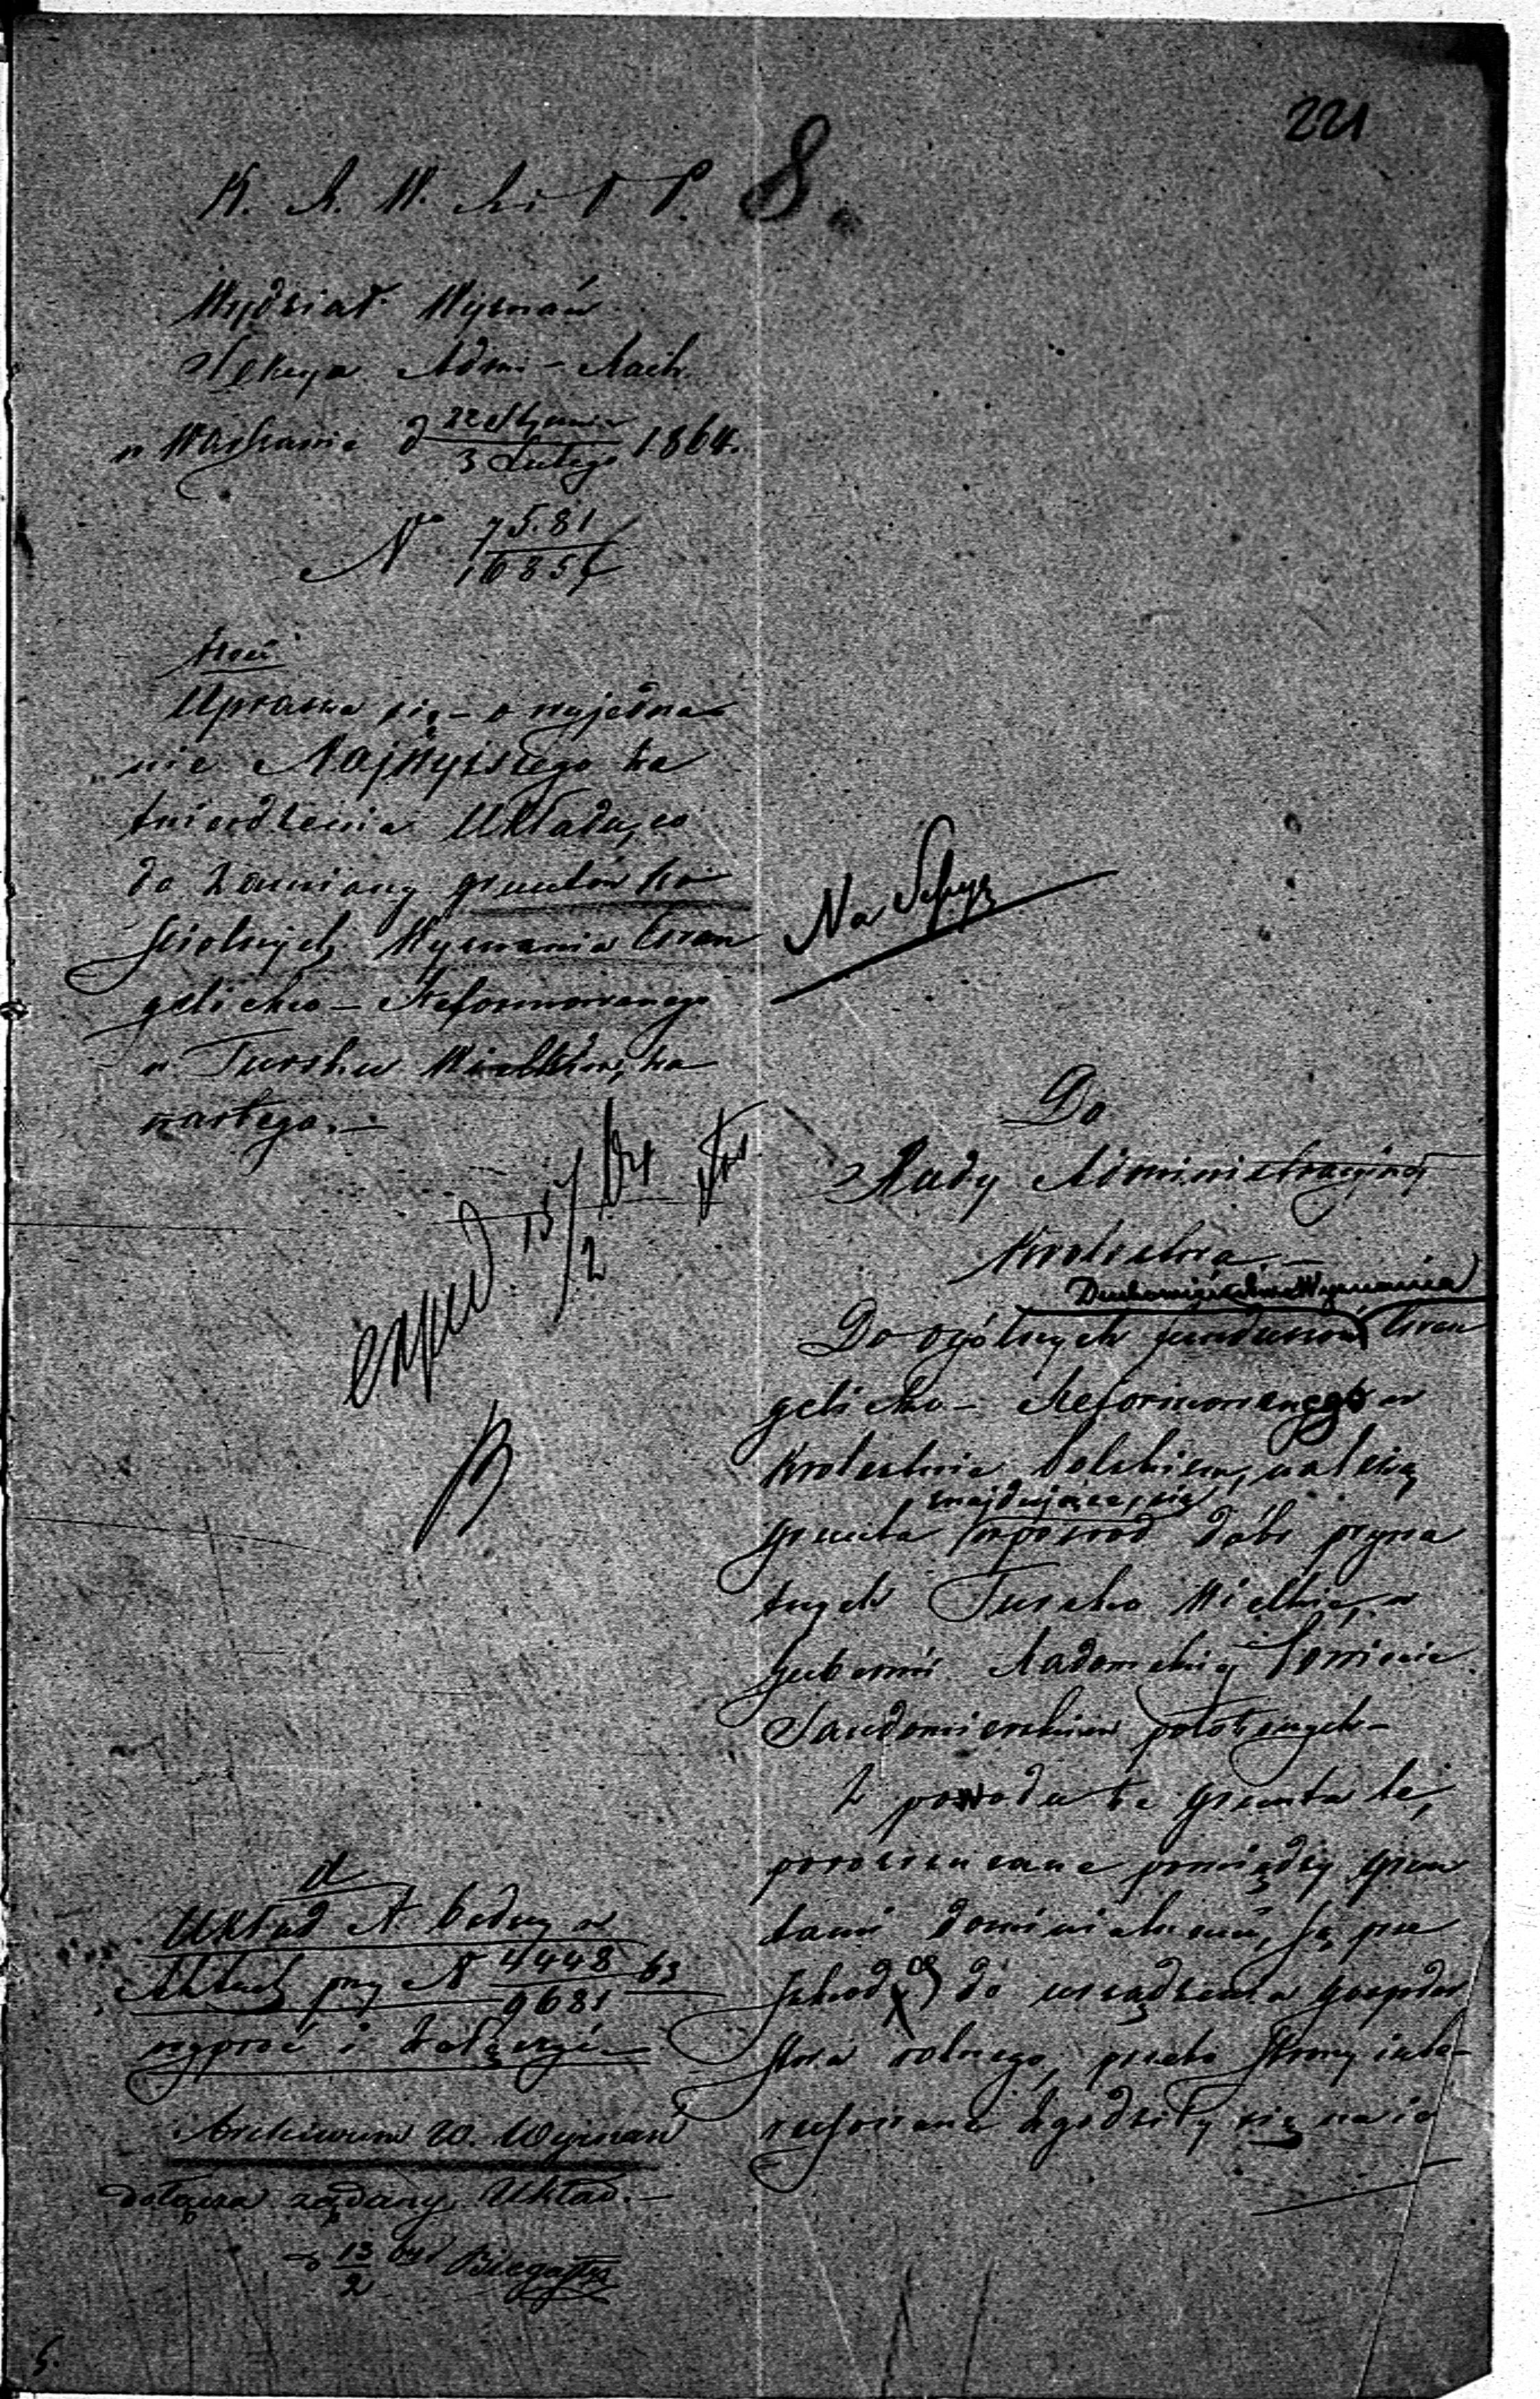 221
8.
Wydział Wyznań
Sekcya Adm: - Rach.
w Warszawie d 22 Stycznia / 3 Lutego 1864.
No 7581 / 16854
treść
Uprasza się - o wyjedna
nie Najwyższego za
twierdzenia Układu, co
do zamiany gruntów ko
ścielnych Wyznania Ewan
gelicko - Reformowanego
w Tursku Wielkim, za
wartego. -
Na Sessyą
exped 15/2 64
Do
Rady Administracyjnej
Królestwa -
Duchowieństwa Wyznania
Do ogólnych funduszów Ewan
gelicko - Reformowanego w
Królestwie Polskiem, należą
znajdujące się
grunta wpośród dóbr prywa
tnych Tursko Wielkie, w
Gubernii Radomskiej Powiecie
Sandomierskim położonych -
Z powodu że grunta te,
porozrzucane pomiędzy grun
tami dominialnemi, są prze
szkodą do urządzenia gospodar
stwa rolnego, przeto Strony inte-
ressowane zgodziły się na ich
Układ A będący w
Aktach przy No 4448 / 9681 63
wyprać i załączyć -
Archiwum W. Wyznań
dołącza żądany Układ. -
d 13/2 64